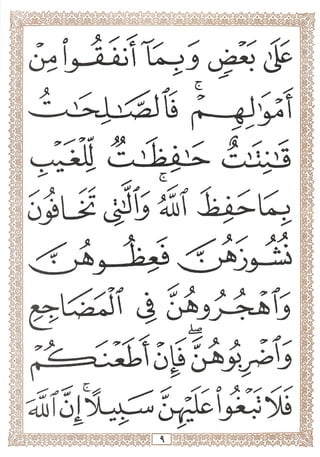 عَلَىٰ بَعْضٍ وَبِمَآ أَنفَقُوا۟ مِنْ
أَمْوَٰلِهِمْ ۚ فَٱلصَّـٰلِحَـٰتُ
قَـٰنِتَـٰتٌ حَـٰفِظَـٰتٌ لِّلْغَيْبِ
بِمَا حَفِظَ ٱللَّهُ ۚ وَٱلَّـٰتِى تَخَافُونَ
نُشُوزَهُنَّ فَعِظُوهُنَّ
وَٱهْجُرُوهُنَّ فِى ٱلْمَضَاجِعِ
وَٱضْرِبُوهُنَّ ۖ فَإِنْ أَطَعْنَكُمْ
فَلَا تَبْغُوا۟ عَلَيْهِنَّ سَبِيلًا ۗ إِنَّ ٱللَّهَ
٩